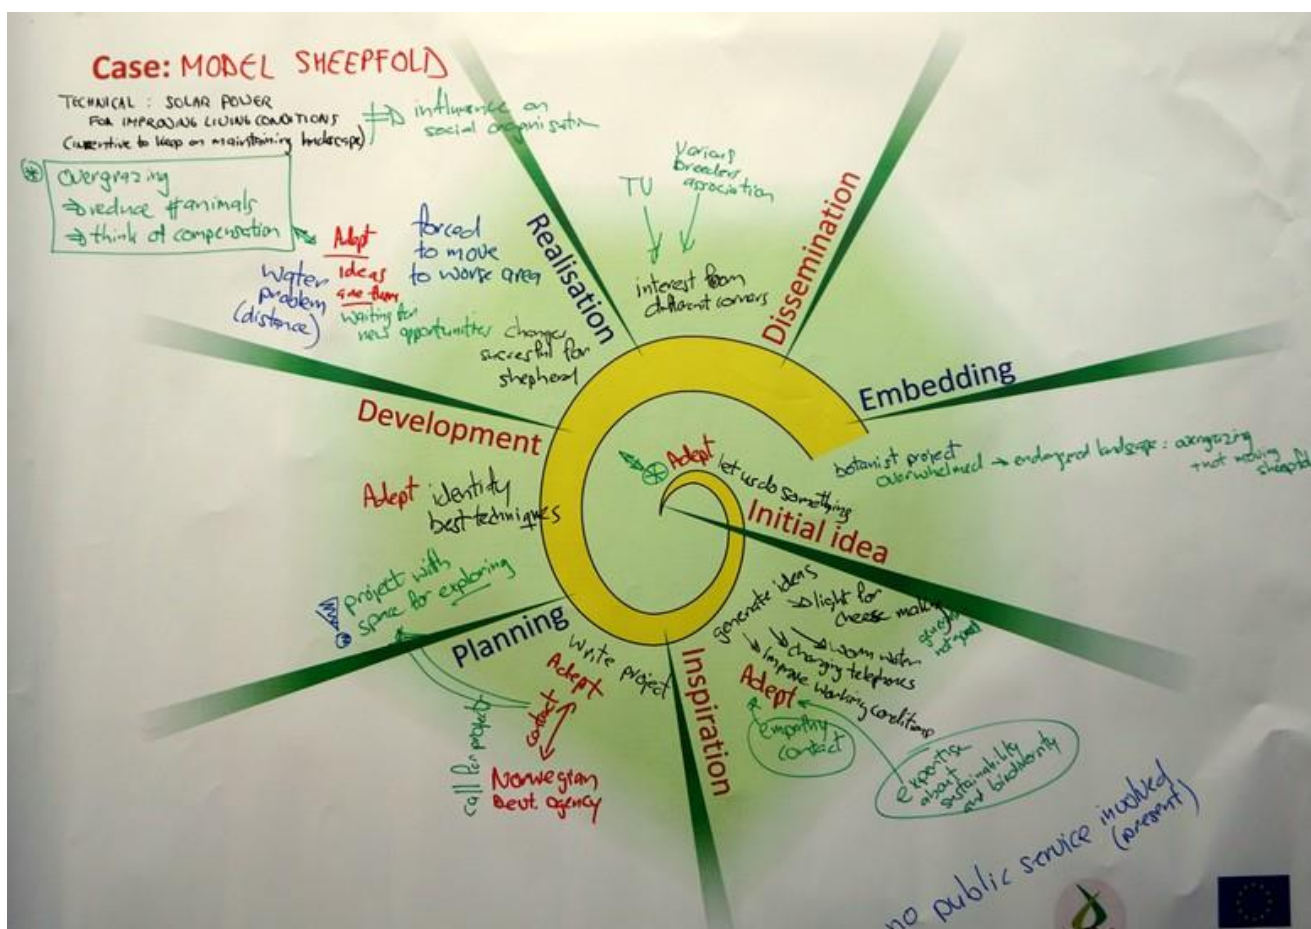 Case: MODEL SHEEPFOLD
TECHNICAL : SOLAR POWER
FOR IMPROVING LIVING CONDITIONS
(incentive to keep on maintaining landscape)
influence on
social organisation
overgrazing
⇒ reduce #animals
⇒ think of compensation
Adept
ideas
water
problem
(distance)
waiting for
new opportunities
forced
to move
to worse area
changes
succesful for
shepherd
Realisation
TV
Various
breeders
association
interest from
different corners
Dissemination
Embedding
botanist project
overwhelmed → endangered landscape : overgrazing
+ not moving
Adept
let us do something
Initial idea
Development
Adept identify
best techniques
project with
space for exploring
Planning
write project
Adept
contact
Norwegian
agency
call for projects
Inspiration
generate ideas
light for
cheese making
not good
warm water
changing telephones
improve working conditions
Adept
empathy
contact
expertise
about
sustainability
and biodiversity
no public service involved
(present)